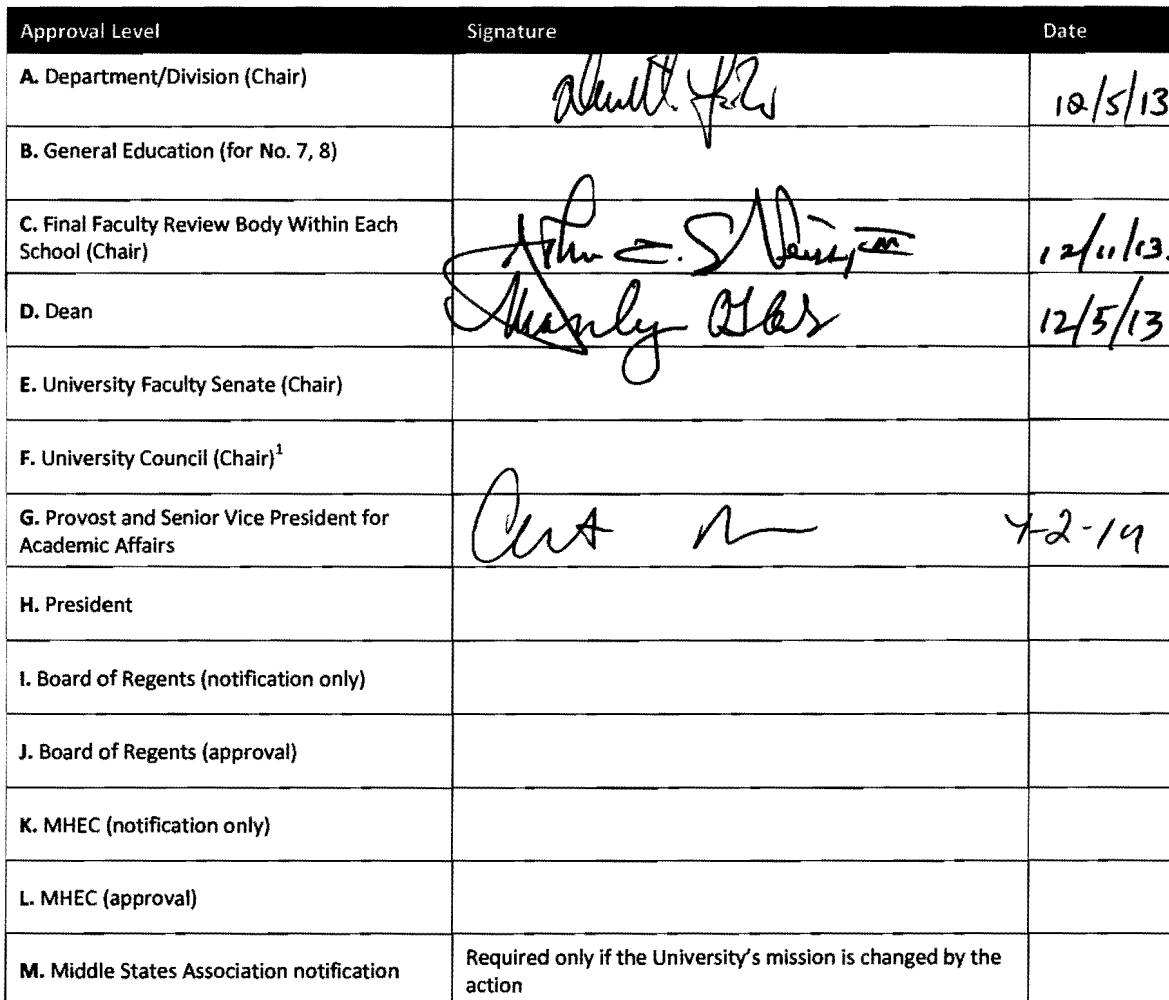 Approval Level Signature Date
A. Department/Division (Chair) 12/5/13
B. General Education (for No. 7, 8)
C. Final Faculty Review Body Within Each
School (Chair) 12/11/13.
D. Dean 12/5/13
E. University Faculty Senate (Chair)
F. University Council (Chair)¹
G. Provost and Senior Vice President for
Academic Affairs
H. President
I. Board of Regents (notification only)
J. Board of Regents (approval)
K. MHEC (notification only)
L. MHEC (approval)
M. Middle States Association notification Required only if the University's mission is changed by the
action